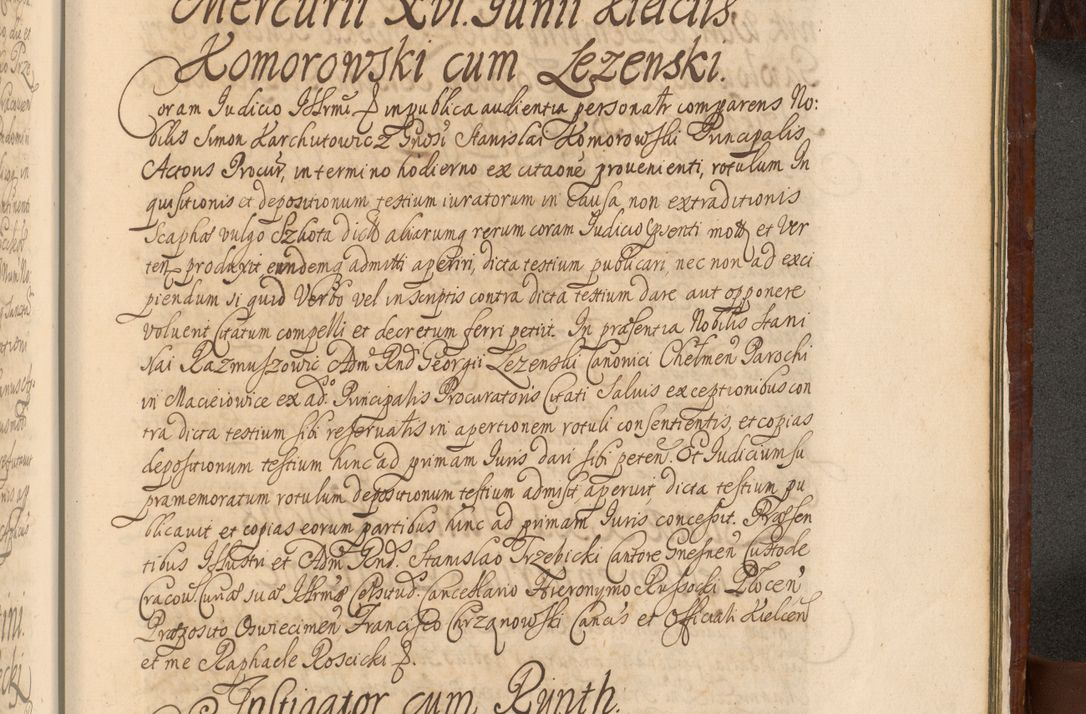 Mercurii XVI. Junii Kielciis.
Komorowski cum Lezenski.
Coram Iudicio Illrmi P in publica audientia personalr comparens No:
bilis Simon Karchutowicz Gnosi Stanislai Komorowski Principalis
Actoris Procur, in termino hodierno ex citaone provenienti, rotulum In
quisitionis et depositionum testium iuratorum in causa non extraditionis
Scaphæ vulgo Szkota dictæ aliarumq rerum coram Iudicio psenti mott et ver
ten produxit eundemq admitti aperiri, dicta testium publicari, nec non ad exci
piendum si quid Verbo vel in scriptis contra dicta testium dare aut opponere
voluerit Citatum compelli et decretum ferri petiit. In præsentia Nobilis Stani
slai Kazmuszowic Adm Rnd Georgii Lezenski Canonici Chelmen Parochi
in Macieiowice ex ad. Principalis Procuratoris Citati Salvis exceptionibus con
tra dicta testium sibi reservatis in apertionem rotuli consentientis, et copias
depositionum testium hinc ad primam Iuris dari sibi peten. Et Iudicium su
pramemoratum rotulum depositionum testium admisit aperuit dicta testium pu
blicavit et copias eorum partibus hinc ad primam Iuris concessit. Præsen
tibus Illustri et Adm Rnd. Stanislao Trzebicki Cantore Gnesnen Custode
Cracou Curiæ suæ Illrmæ Celsitud. Cancellario Hieronymo Russocki Plocen
Præposito Oswiecimen Francisco Chrzanowski Cancis et Officiali Kielcen
et me Raphaele Roscicki P.
Instigator cum Rynth.